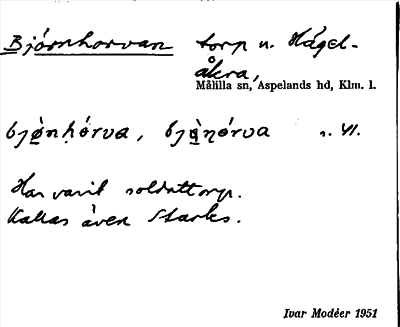 Björnhorvan torp u. Hagel-
åkra,
Målilla sn, Aspelands hd, Klm. l.
bjø̀nḥórva, bjø̀ṇórva s. VI.
Har varit soldattorp.
Kallas även Starks.
Ivar Modéer 1951